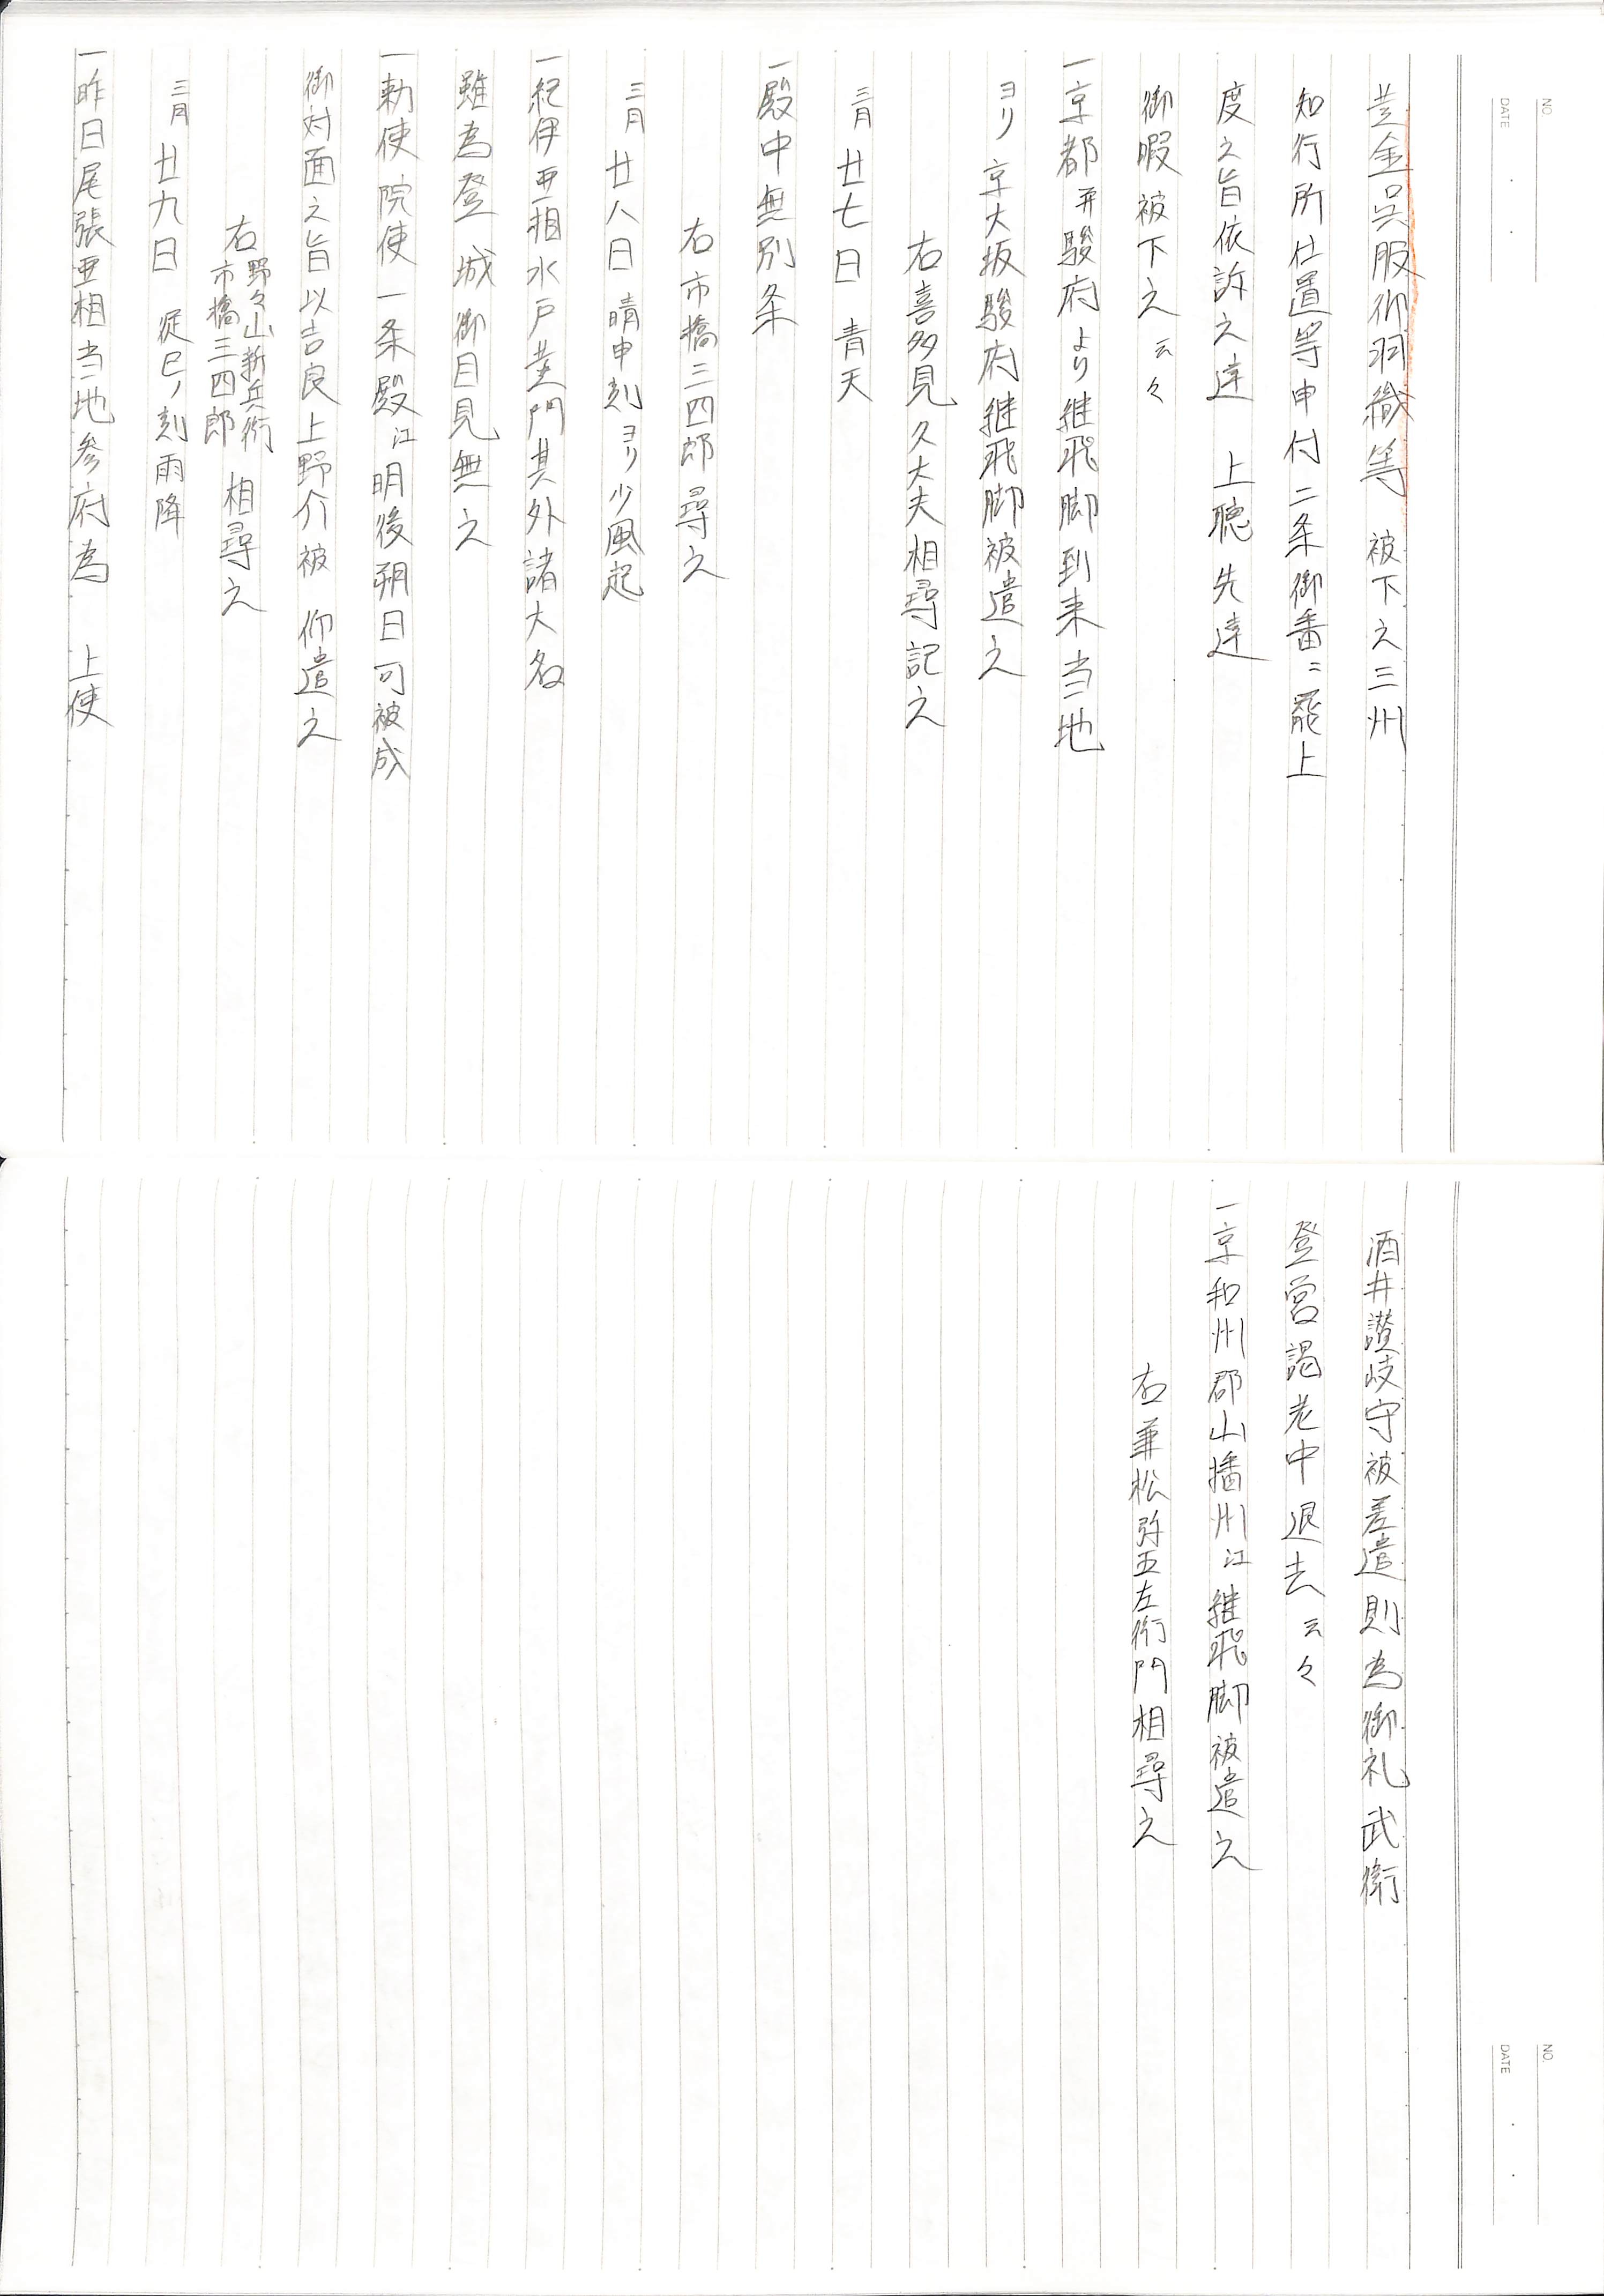 黄金呉服御羽織等 被下之三州
知行所仕置等申付二条御番ニ罷上
度之旨依訴之達 上聴先達
御暇被下之 云々
一京都并駿府より継飛脚到来当地
ヨリ京大坂駿府継飛脚被遣之
右喜多見久大夫相尋記之
三月 廿七日 青天
一殿中無別条
右市橋三四郎尋之
三月 廿八日 晴申刻ヨリ少風起
一紀伊亜相水戸黄門其外諸大名
雖為登 城御目見無之
一勅使院使一条殿江明後朔日可被成
御対面之旨以吉良上野介被 仰遣之
右野々山新兵衛
市橋三四郎 相尋之
三月 廿九日 従巳ノ刻雨降
一昨日尾張亜相当地参府為 上使
NO.
DATE
酒井讃岐守被差遣則為御礼武衛
登営謁老中退去 云々
一京和州郡山播州江継飛脚被遣之
右兼松弥五左衛門相尋之
NO.
DATE